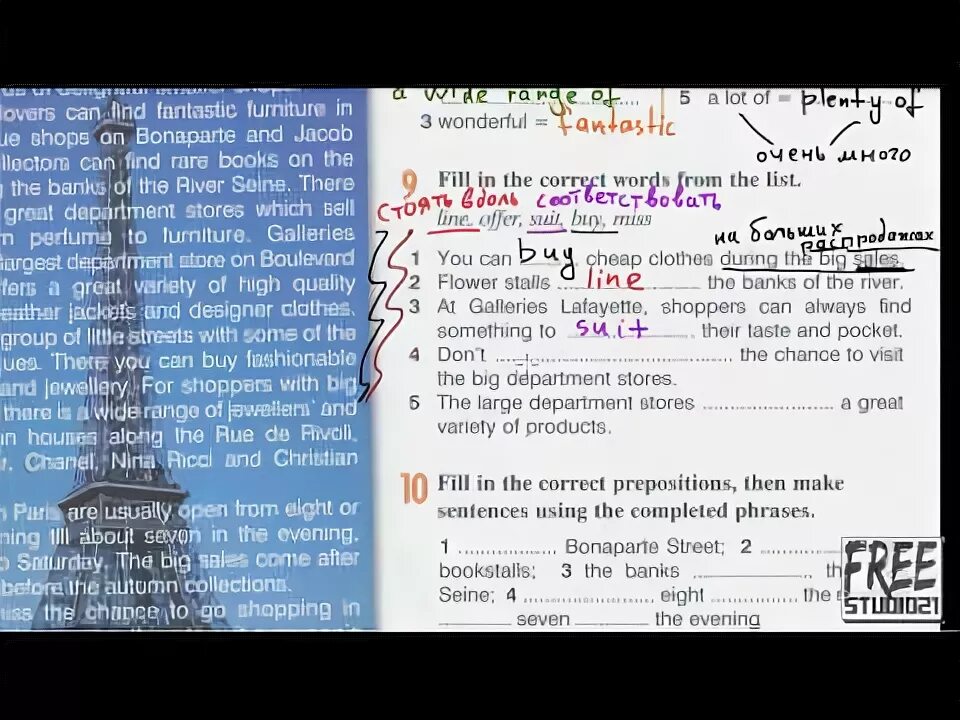 lovers can find fantastic furniture in
ue shops on Bonaparte and Jacob
can find rare books on the
the banks of the River Seine. There
great department stores which sell
m perfume to furniture. Galleries
largest department store on Boulevard
fers a great variety of high quality
eather jackets and designer clothes.
group of little streets with some of the
ues. There you can buy fashionable
and jewellery. For shoppers with big
there is a wide range of jewellers' and
n houses along the Rue de Rivoli.
r. Chanel, Nina Ricci and Christian
Paris are usually open from eight or
ning till about seven in the evening,
Saturday. The big sales come after
before the autumn collections.
iss the chance to go shopping in
a wide range of
3 wonderful = fantastic
5 a lot of = plenty of
очень много
9 Fill in the correct words from the list.
стоять вдоль соответствовать
line, offer, suit, buy, miss
на больших
распродажах
1 You can buy cheap clothes during the big sales.
2 Flower stalls line the banks of the river.
3 At Galleries Lafayette, shoppers can always find
something to suit their taste and pocket.
4 Don't .......... the chance to visit
the big department stores.
5 The large department stores .......... a great
variety of products.
10 Fill in the correct prepositions, then make
sentences using the completed phrases.
1 .......... Bonaparte Street; 2 ..........
bookstalls; 3 the banks .......... th
Seine; 4 .......... eight .......... the
.......... seven .......... the evening
FREE
STUDIO21